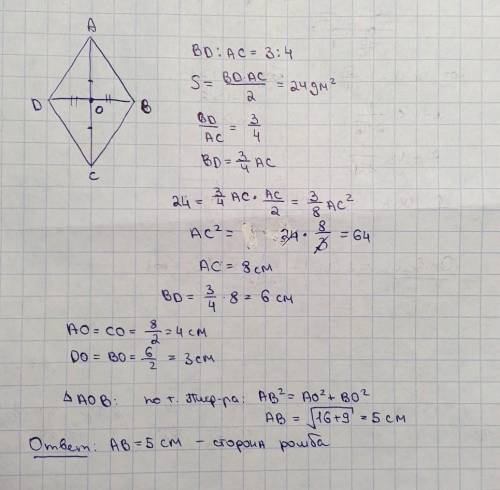 A
D
O
B
C
BD : AC = 3 : 4
S = BD·AC/2 = 24 дм²
BD/AC = 3/4
BD = 3/4 AC
24 = 3/4 AC · AC/2 = 3/8 AC²
AC² = 24 · 8/3 = 64
AC = 8 см
BD = 3/4 · 8 = 6 см
AO = CO = 8/2 = 4 см
DO = BO = 6/2 = 3 см
△ AOB: по т. Пиф-ра: AB² = AO² + BO²
AB = √16+9 = 5 см
Ответ: AB = 5 см – сторона ромба